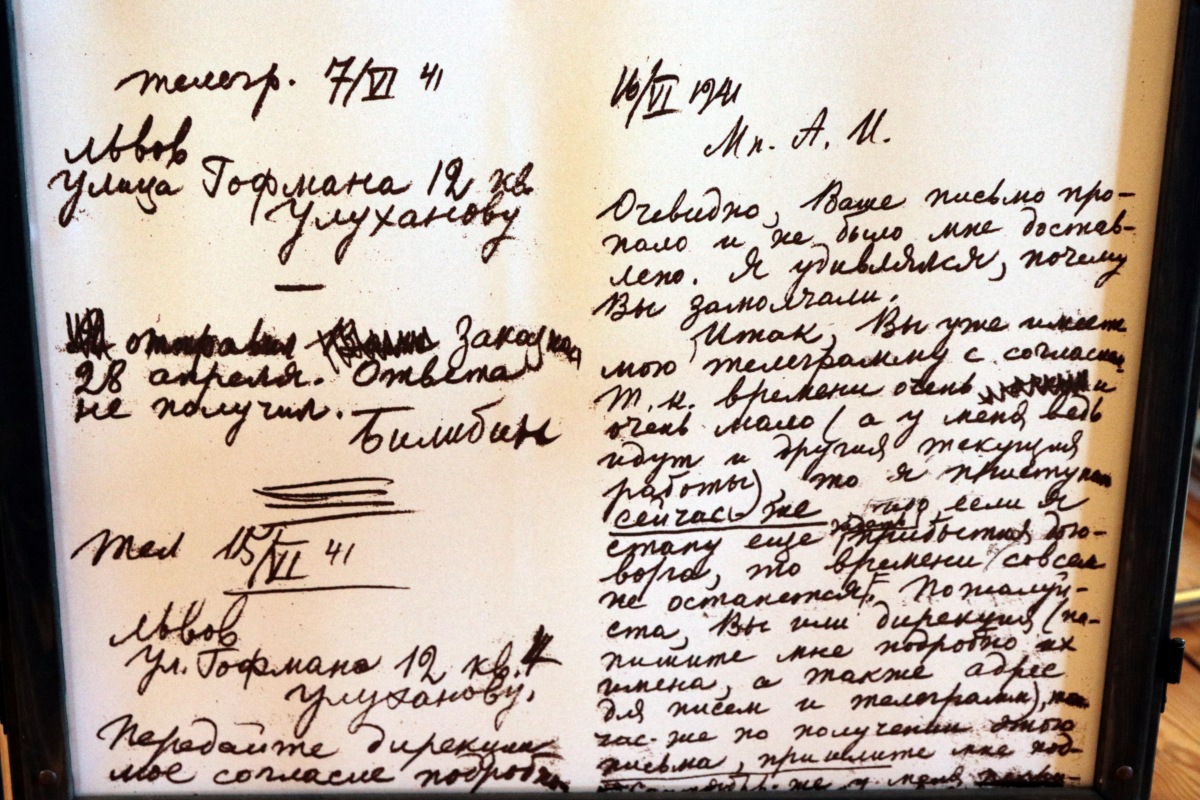 телегр. 7/VI 41
Львов
улица Гофмана 12 кв
Улуханову
отправил заказн
28 апреля. Ответа
не получил.
Билибин
Тел 15/VI 41
Львов
ул. Гофмана 12 кв. 4
Улуханову.
Передайте дирекции
мое согласие подробн
16/VI 1941
Мн. А. И.
Очевидно, Ваше письмо про-
пало и не было мне достав-
лено. Я удивлялся, почему
Вы замолчали.
Итак, Вы уже имеете
мою телеграмму с согласием
Т. к. времени очень и
очень мало (а у меня ведь
идут и другия текущия
работы), то я приступаю
сейчас-же, если я
стану еще ждать прибытия дого-
вора, то времени совсем
не останется. Пожалуй-
ста, Вы или дирекция (на-
пишите мне подробно их
имена, а также адрес
для писем и телеграмм),
час-же по получении этого
письма, пришлите мне под-
же у меня